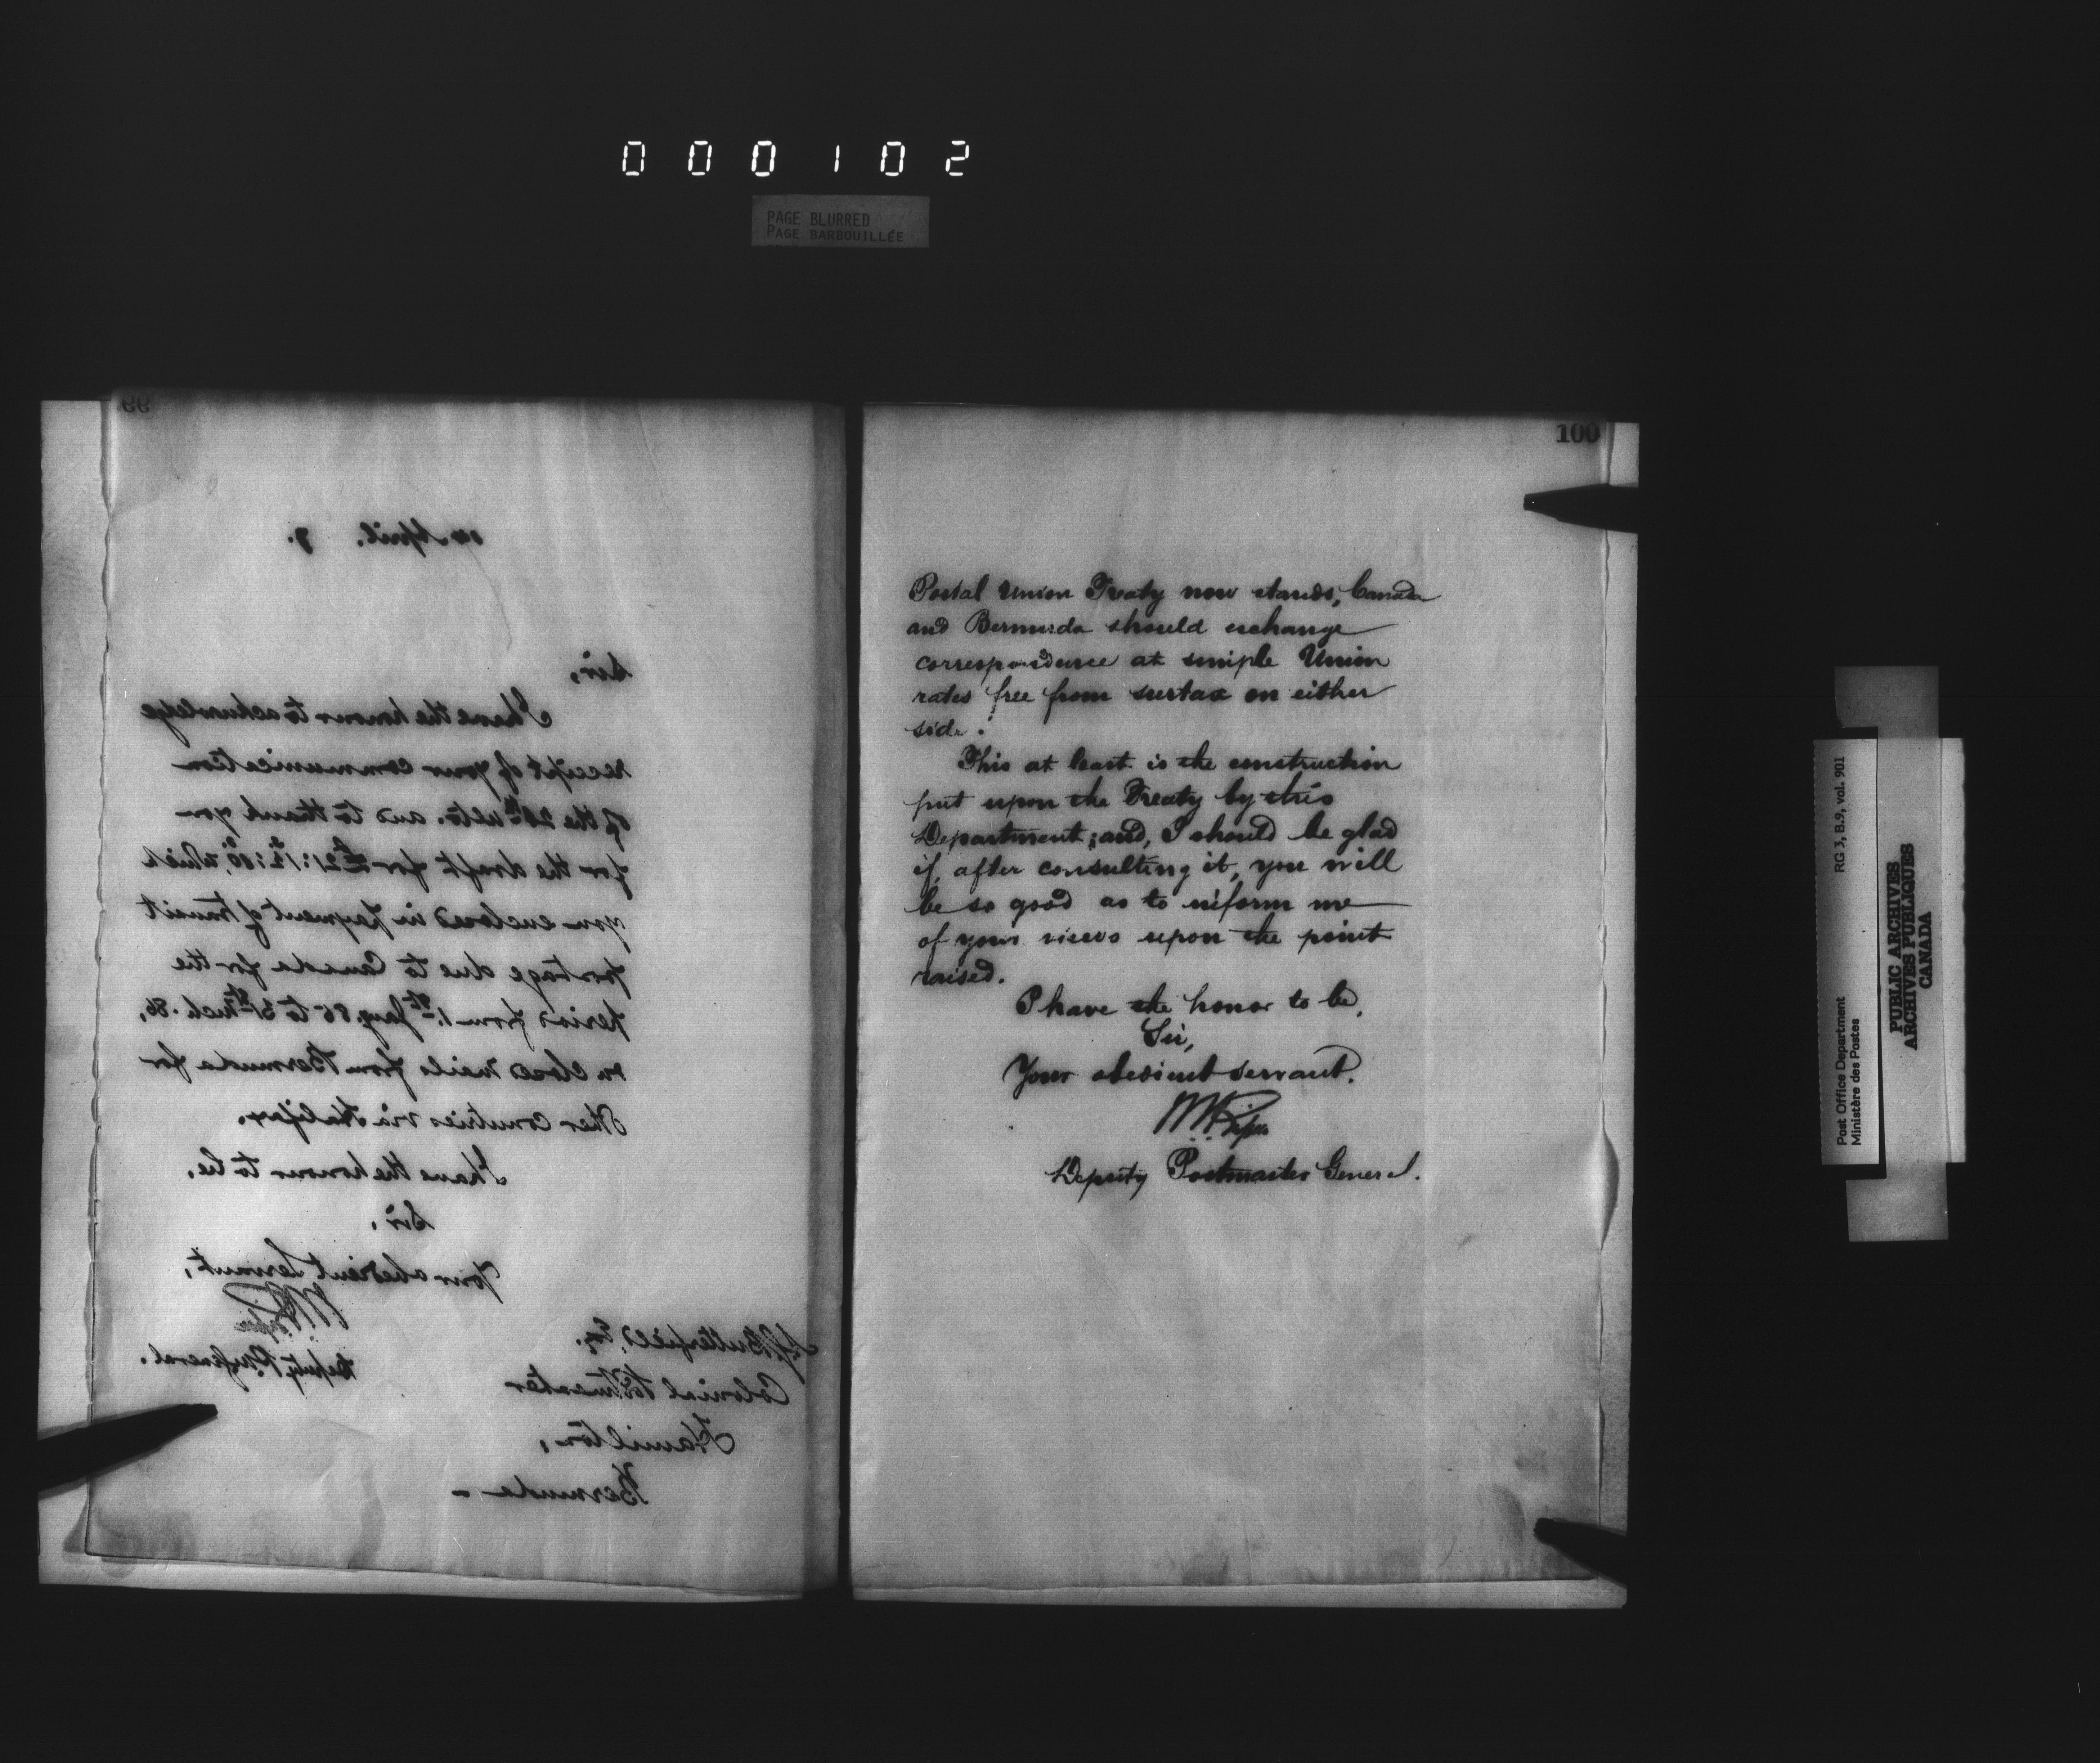 000102
PAGE BLURRED
PAGE BARBOUILLÉE
99
14 April. 7.
Sir,
I have the honour to acknowledge
receipt of your communication
of the ulto. and to thank you
for the draft for £21: which
you enclosed in payment of transit
postage due to Canada for the
period from 1st Jany. 86 to 31st Mch. 86,
on closed mails from Bermuda for
other countries via Halifax.
I have the honour to be,
Sir,
Your obedient Servant,
Deputy P.M. General.
Butterfield, Esq.
Colonial Postmaster
Hamilton,
Bermuda -
100
Postal Union Treaty now stands, Canada
and Bermuda should exchange
correspondence at simple Union
rates free from surtax on either
side.
This at least is the construction
put upon the Treaty by this
Department; and, I should be glad
if, after consulting it, you will
be so good as to inform me
of your views upon the point
raised.
I have the honor to be,
Sir,
Your obedient servant.
Deputy Postmaster General.
Post Office Department
Ministère des Postes
RG 3, B.9, vol. 901
PUBLIC ARCHIVES
ARCHIVES PUBLIQUES
CANADA